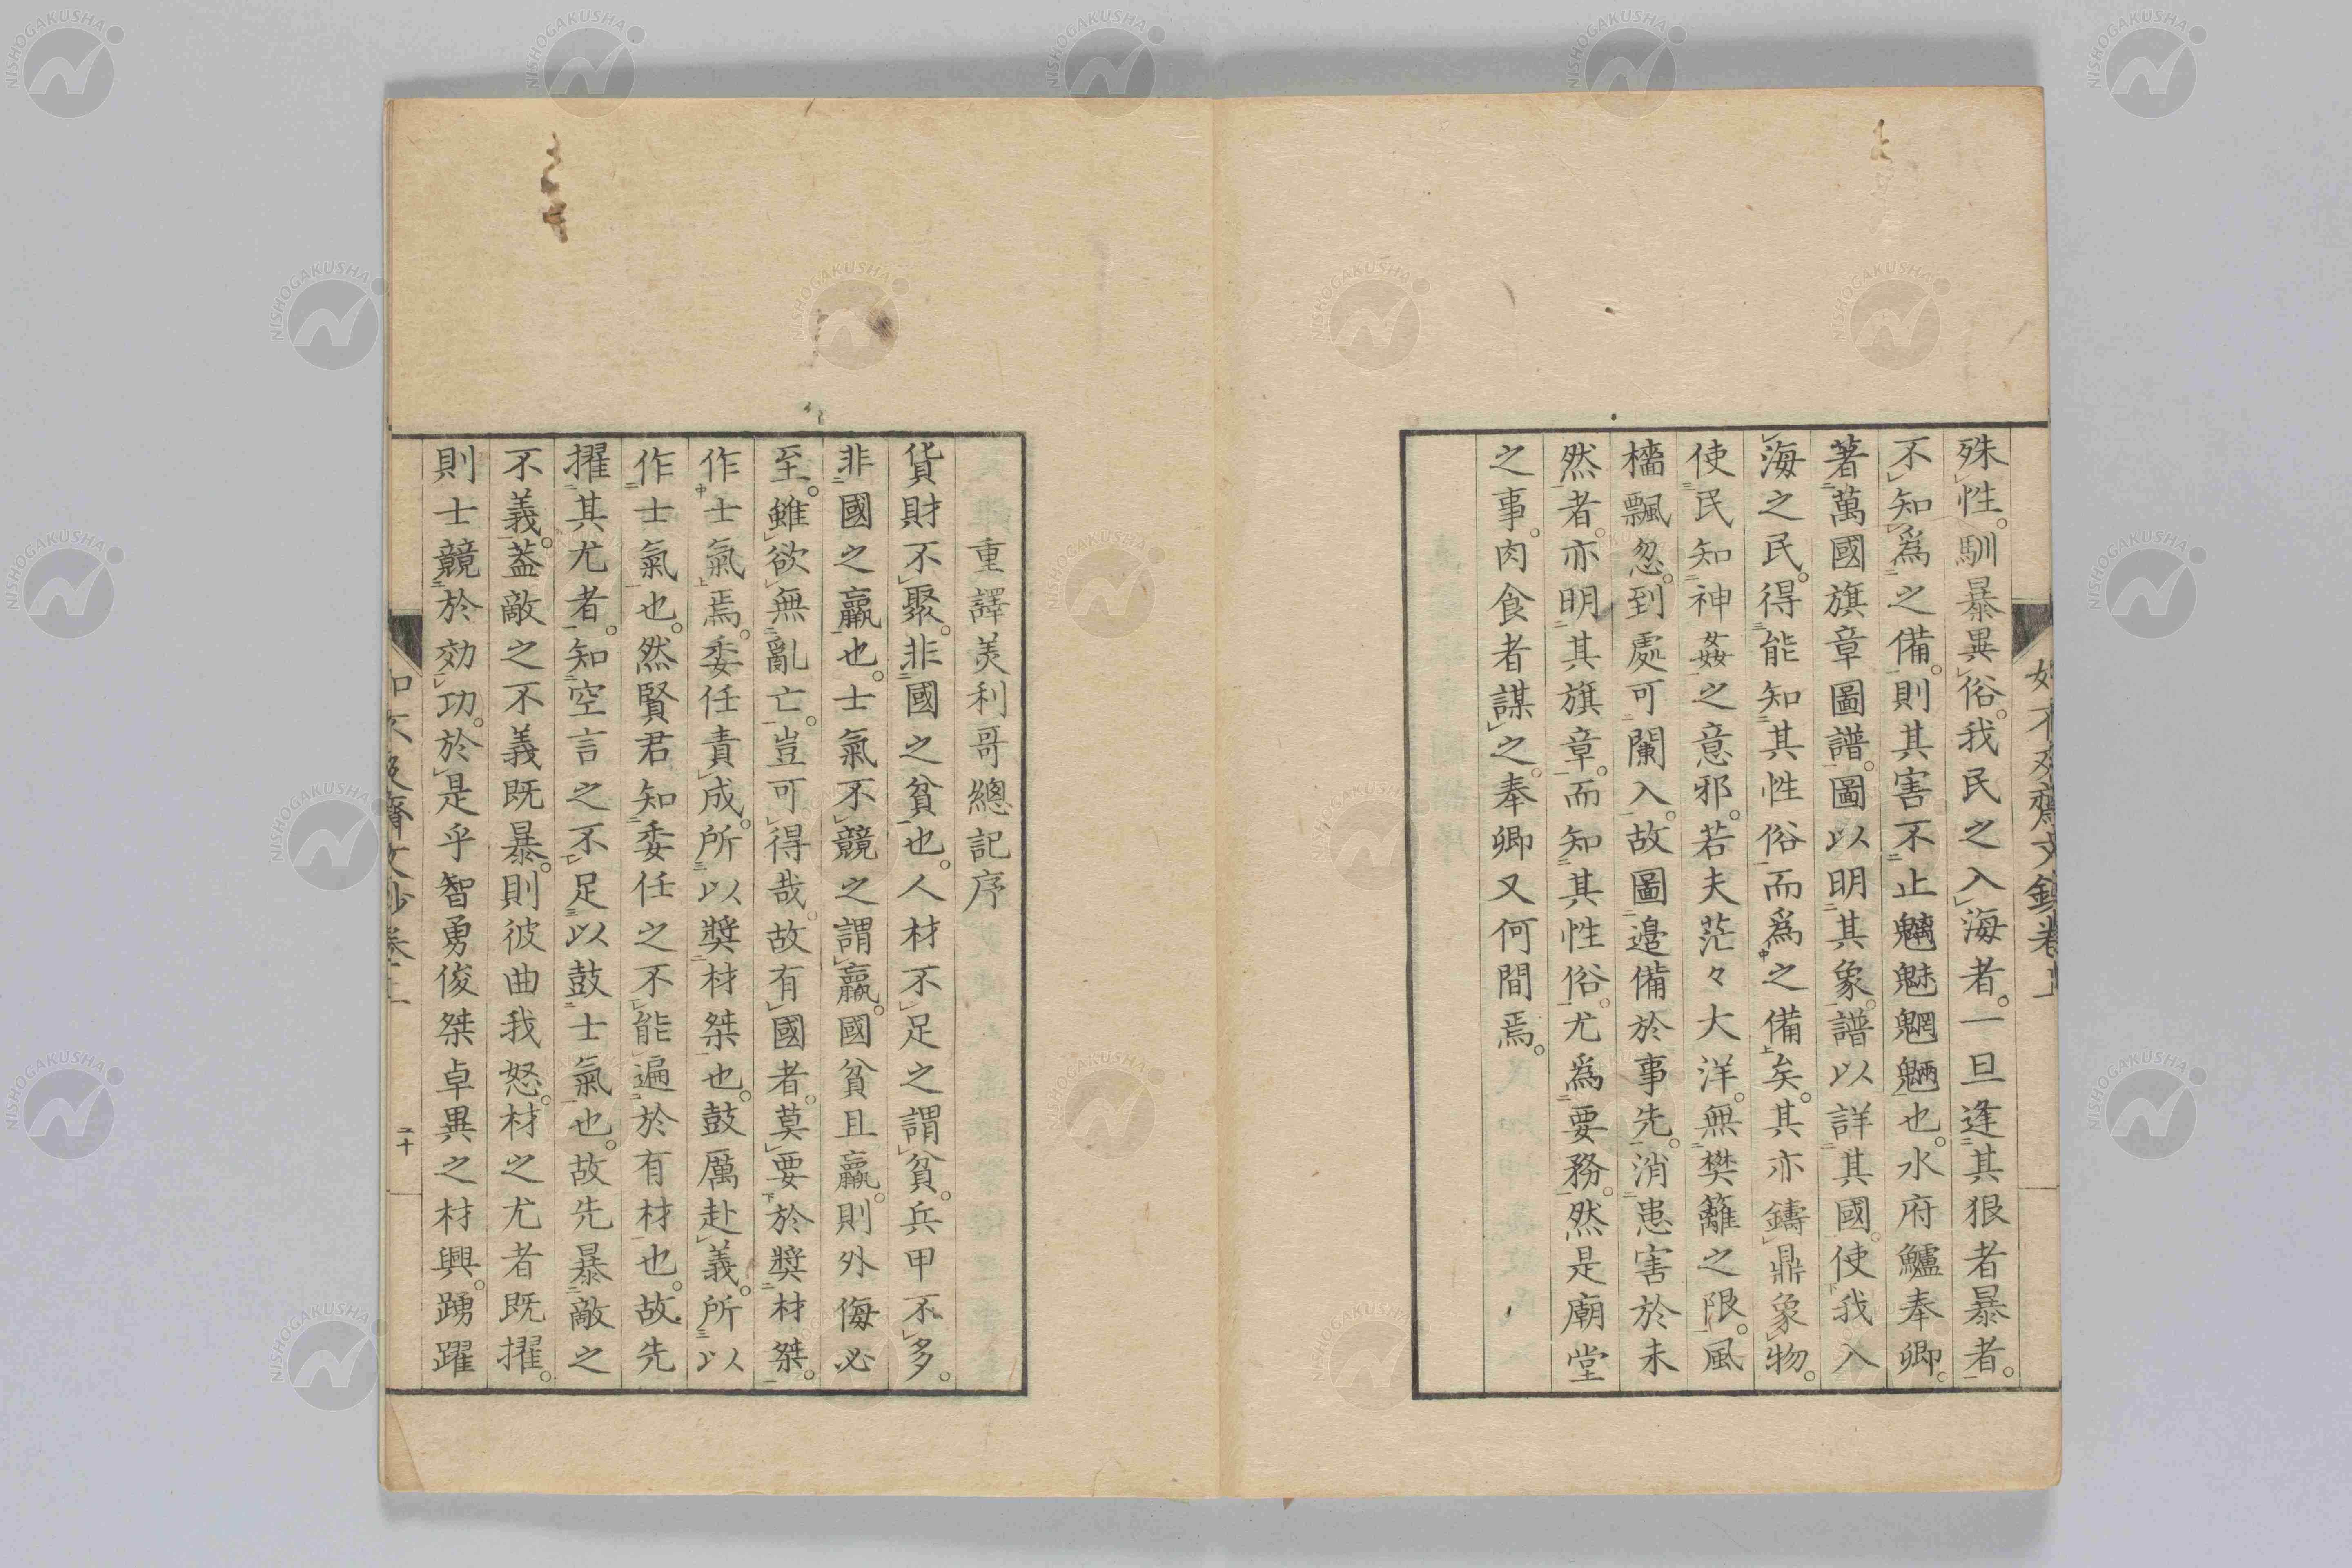 殊性。馴暴異俗。我民之入海者。一旦逢其狠者暴者。
不知爲之備。則其害不止魑魅魍魎也。水府鱸奉卿。
著萬國旗章圖譜。圖以明其象。譜以詳其國。使我入
海之民。得能知其性俗。而爲之備矣。其亦鑄鼎象物。
使民知神姦之意邪。若夫茫々大洋。無樊籬之限。風
檣飄忽。到處可闌入。故圖邊備於事先。消患害於未
然者。亦明其旗章。而知其性俗。尤爲要務。然是廟堂
之事。肉食者謀之。奉卿又何間焉。
重譯美利哥總記序
貨財不聚。非國之貧也。人材不足之謂貧。兵甲不多。
非國之羸也。士氣不競之謂羸。國貧且羸。則外侮必
至。雖欲無亂亡。豈可得哉。故有國者。莫要於奬材桀。
作士氣焉。委任責成。所以奬材桀也。鼓厲赴義。所以
作士氣也。然賢君知委任之不能遍於有材也。故先
擢其尤者。知空言之不足以鼓士氣也。故先暴敵之
不義。蓋敵之不義既暴。則彼曲我怒。材之尤者既擢。
則士競於効功。於是乎智勇俊桀卓異之材興。踴躍
二十
NISHOGAKUSHA